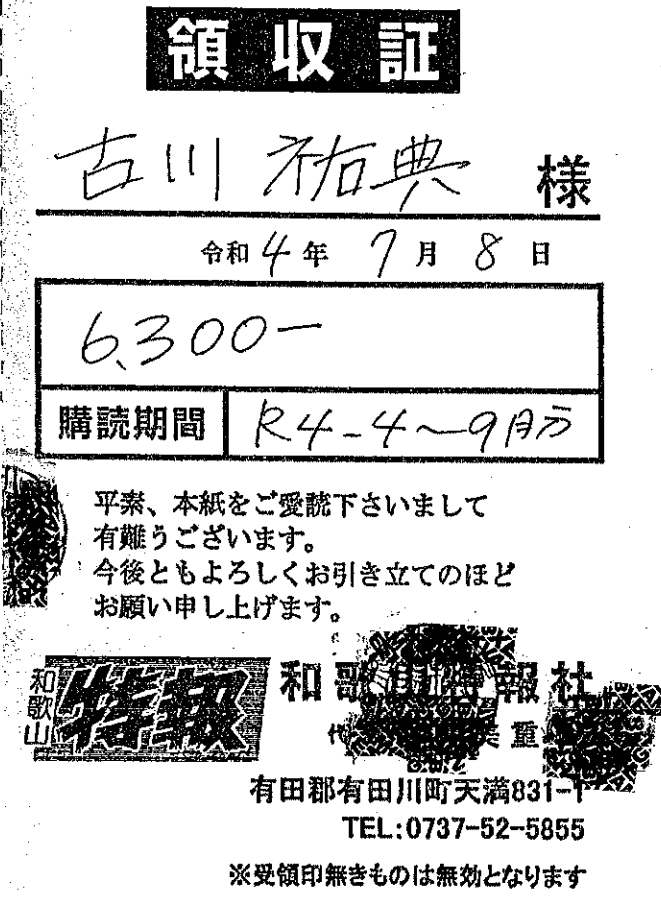 領収証
古川 祐典 様
令和4年 7月 8日
6,300-
購読期間 R4-4~9月分
平素、本紙をご愛読下さいまして
有難うございます。
今後ともよろしくお引き立てのほど
お願い申し上げます。
和歌山特報 和歌山特報社
代 美 重
有田郡有田川町天満831-1
TEL:0737-52-5855
※受領印無きものは無効となります